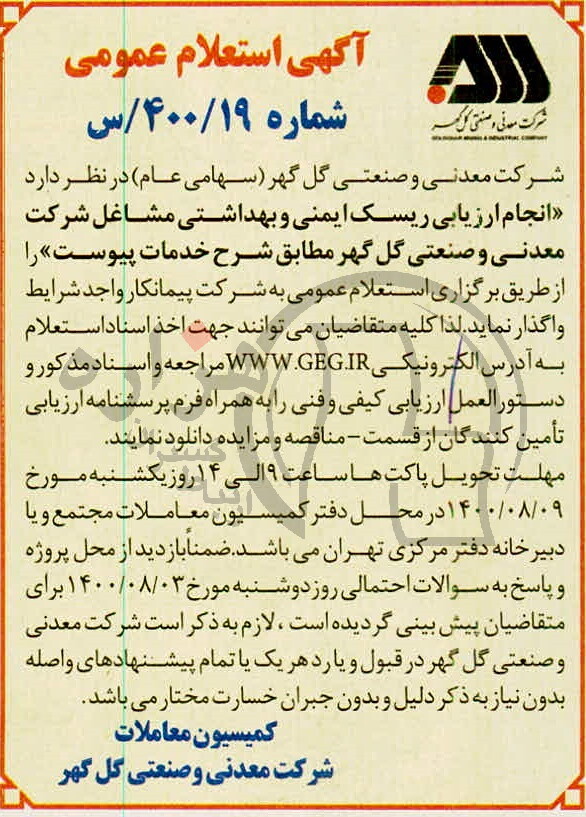 آگهی استعلام عمومی
شماره ۴۰۰/۱۹/س
شرکت معدنی و صنعتی گل گهر
GOLGOHAR MINING & INDUSTRIAL COMPANY
شرکت معدنی و صنعتی گل گهر (سهامی عام) در نظر دارد
«انجام ارزیابی ریسک ایمنی و بهداشتی مشاغل شرکت
معدنی و صنعتی گل گهر مطابق شرح خدمات پیوست» را
از طریق برگزاری استعلام عمومی به شرکت پیمانکار واجد شرایط
واگذار نماید. لذا کلیه متقاضیان می توانند جهت اخذ اسناد استعلام
به آدرس الکترونیکی WWW.GEG.IR مراجعه و اسناد مذکور و
دستورالعمل ارزیابی کیفی و فنی را به همراه فرم پرسشنامه ارزیابی
تأمین کنندگان از قسمت - مناقصه و مزایده دانلود نمایند.
مهلت تحویل پاکت ها ساعت ۹ الی ۱۴ روز یکشنبه مورخ
۱۴۰۰/۰۸/۰۹ در محل دفتر کمیسیون معاملات مجتمع و یا
دبیرخانه دفتر مرکزی تهران می باشد. ضمناً بازدید از محل پروژه
و پاسخ به سوالات احتمالی روز دوشنبه مورخ ۱۴۰۰/۰۸/۰۳ برای
متقاضیان پیش بینی گردیده است ، لازم به ذکر است شرکت معدنی
و صنعتی گل گهر در قبول و یا رد هر یک یا تمام پیشنهادهای واصله
بدون نیاز به ذکر دلیل و بدون جبران خسارت مختار می باشد.
کمیسیون معاملات
شرکت معدنی و صنعتی گل گهر